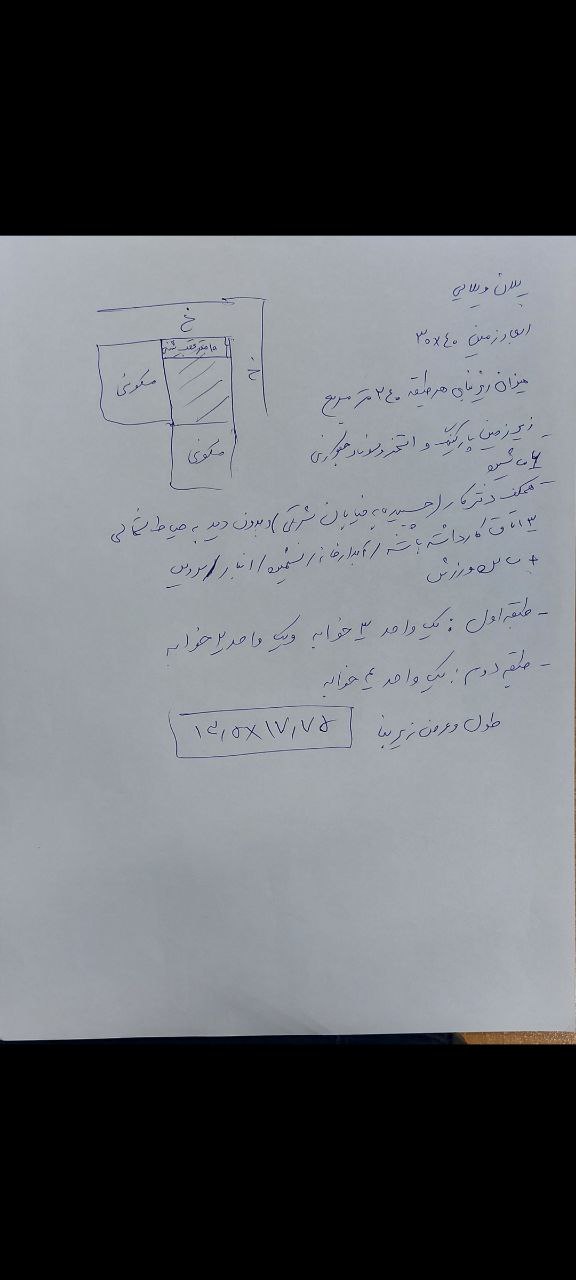 پلان ویلایی
ابعاد زمین ۳۰×۴۰
میزان زیربنای هر طبقه ۲۴۰ متر مربع
زیرزمین پارکینگ و استخر و سونا و جکوزی
- همکف دفتر کار (چسبیده به خیابان شرقی) و بدون دید به حیاط شمالی
۳ اتاق کار داشته باشه / آبدارخانه / نشیمن / انبار / سرویس
+ سالن ورزش
- طبقه اول: یک واحد ۳ خوابه و یک واحد ۲ خوابه
- طبقه دوم: یک واحد ۴ خوابه
طول و عرض زیر بنا ۱۳٫۵×۱۷٫۷۵
خ
خ
مسکونی
مسکونی